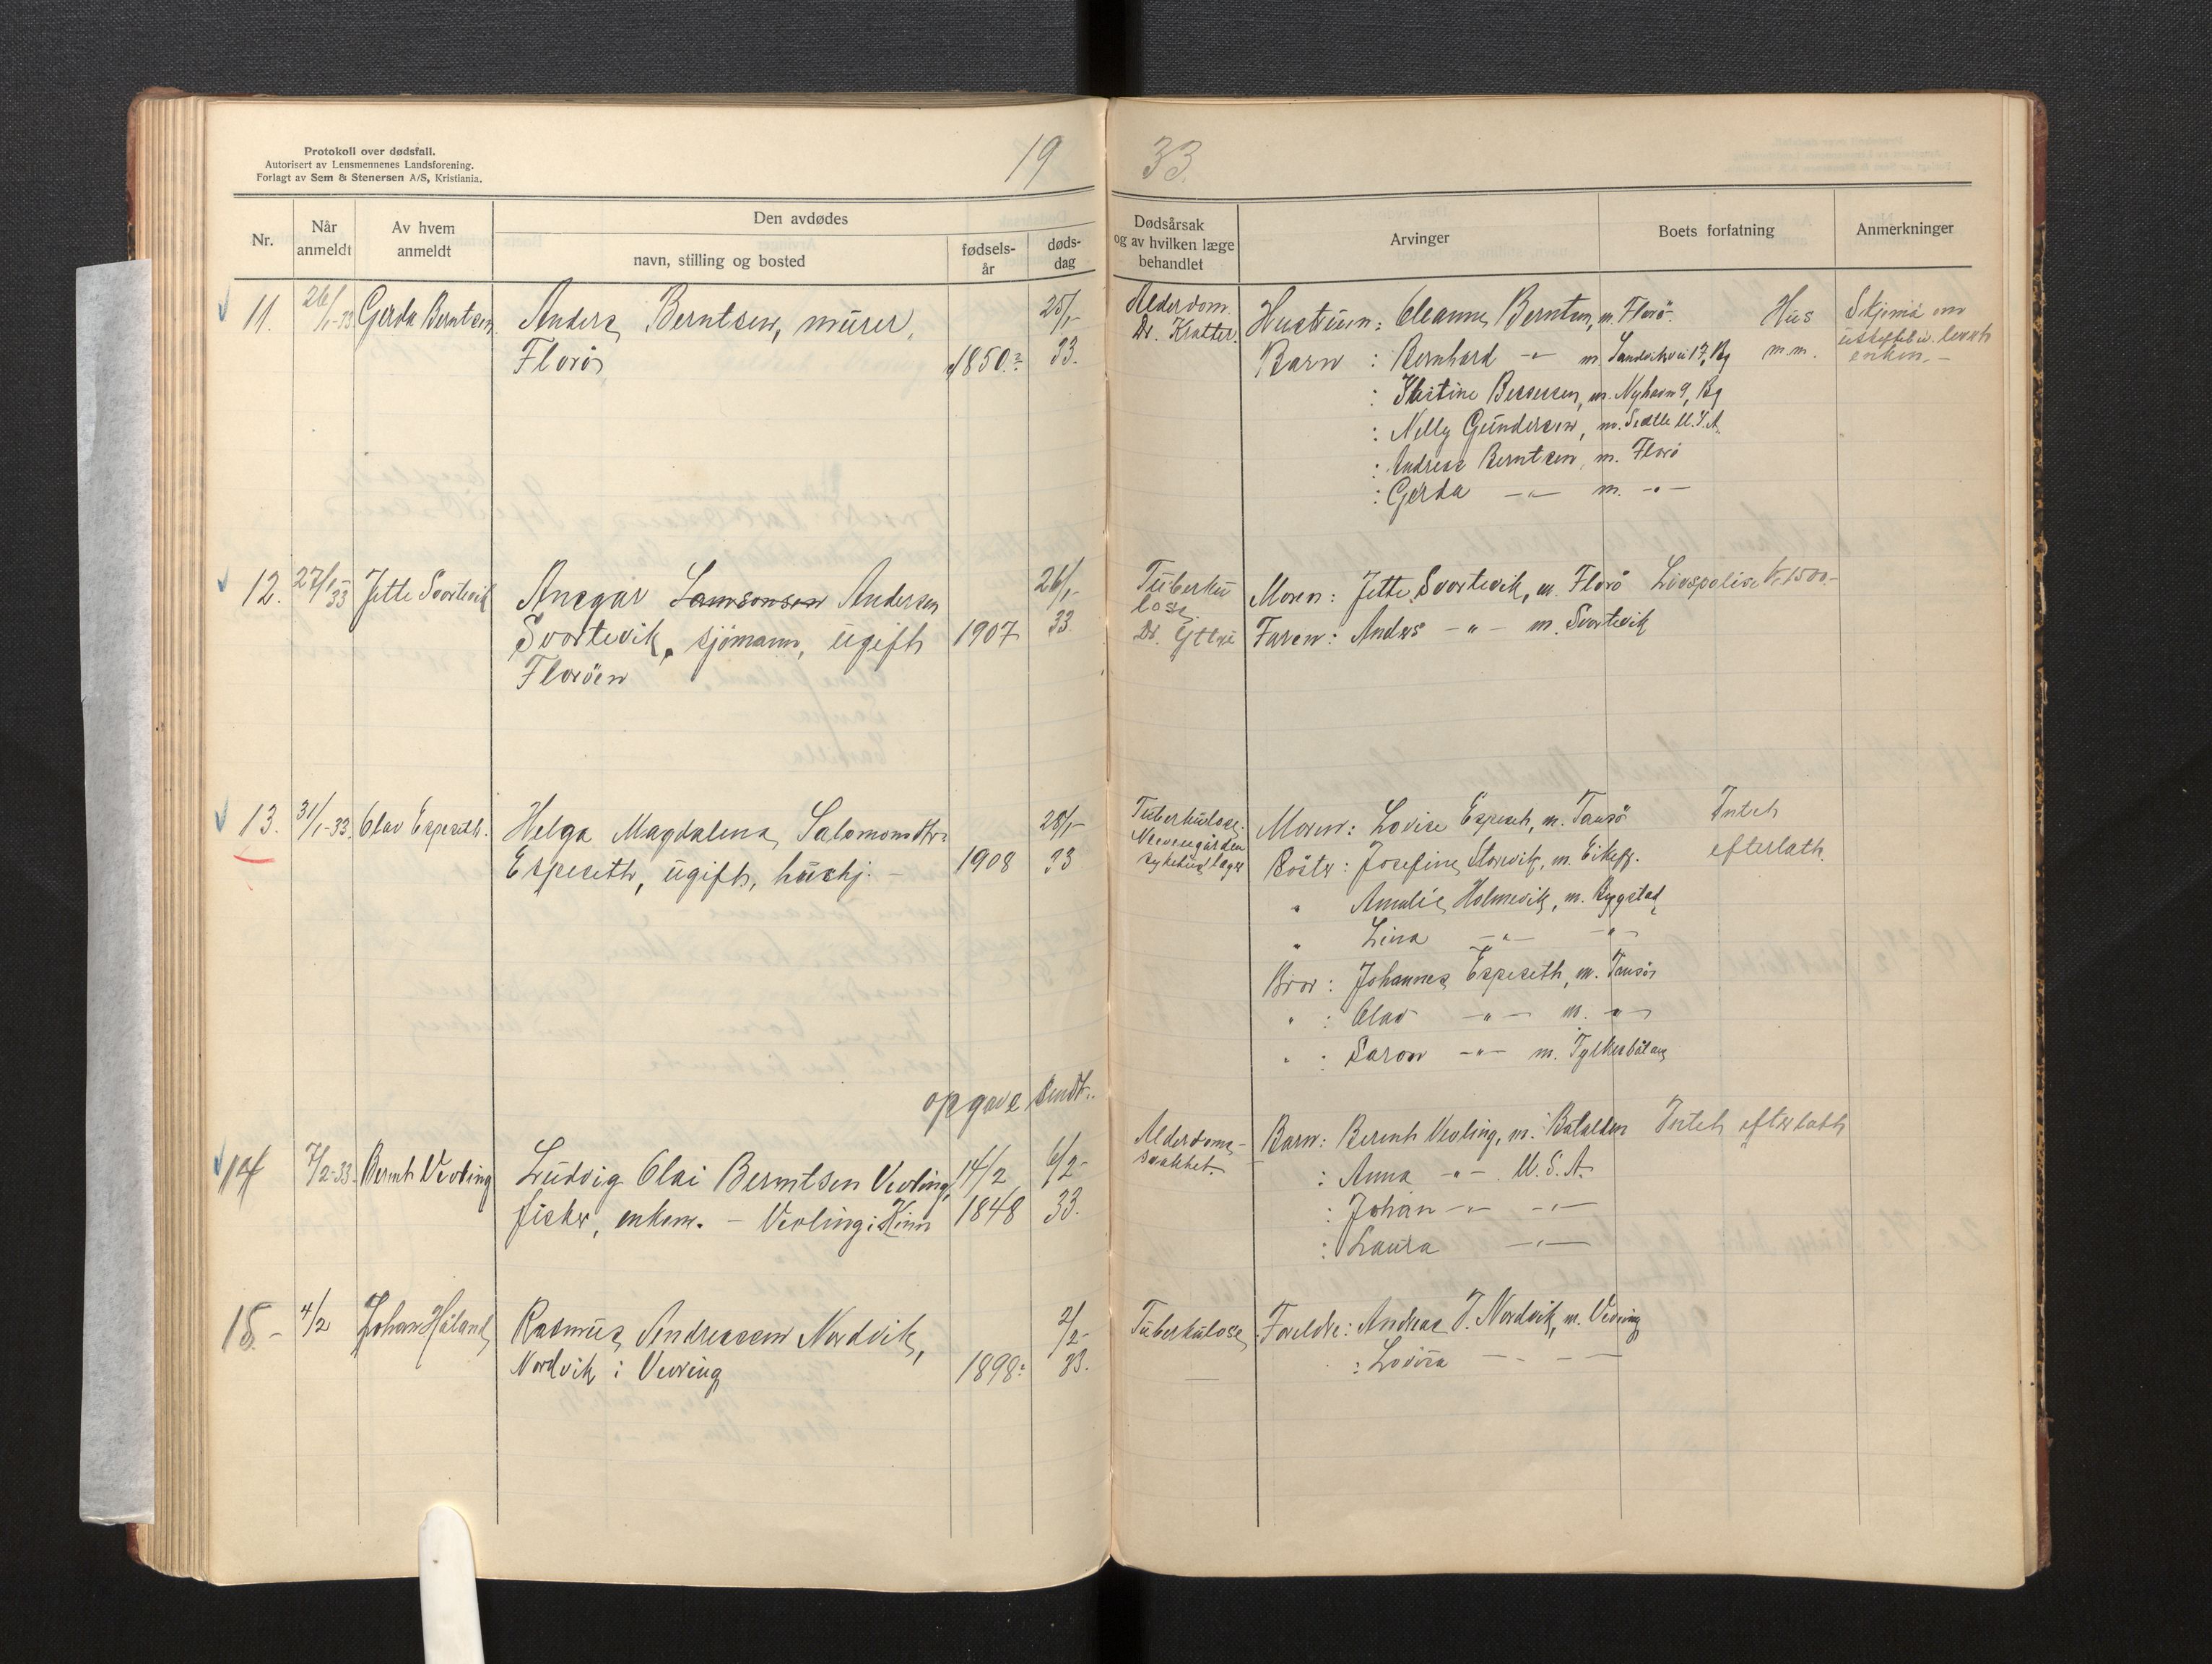 Protokoll over dødsfall.
Autorisert av Lensmennenes Landsforening.
Forlagt av Sem & Stenersen A/S, Kristiania.
19 33.
Nr.
Når anmeldt
Av hvem anmeldt
Den avdødes
navn, stilling og bosted
fødsels-år
døds-dag
Dødsårsak og av hvilken læge behandlet
Arvinger
Boets forfatning
Anmerkninger
11. 26/1-33 Gerda Berntsen
Anders Berntsen, murer,
Florø
1850
25/1-33.
Alderdom.
Dr. Kratter.
Hustruen: Oleanna Berntsen, m. Florø.
Barn : Bernhard -"- m. Sandviksvei 17, Bg
: Kristine Bessesen, m. Nyhavn 9, Bg
: Nelly Gundersen, m. Seatle U.S.A.
: Andreas Berntsen, m. Florø
: Gerda -"- m. -"-
Hus
m.m.
Skjema om
enken.-
12. 27/1-33 Jette Svortevik
Ansgar Samsonsen Andersen
Svortevik, sjømann, ugift
Florøen
1907
26/1-33.
Tuberku
lose
Dr.
Moren: Jette Svortevik, m. Florø
Faren: Anders -"- m. Svortevik
Livspolise kr 1500.-
13. 31/1-33. Olav Espeseth.
Helga Magdalena Salomonsdtr.
Espeseth, ugift, hushj. -
1908
28/1-33
Tuberkulose.
sykehus læge
Moren: Lovise Espeseth, m. Tansø
Søster: Josefine Storevik, m. Eikefj.
" Amalie Holmevik, m. Bygstad
" Lina -"- -"-
Bror: Johannes Espeseth, m. Tansø
" : Olav -"- m. -"-
" : Saron -"- m.
Intet
efterlatt.
opgave sendt.
14 7/2-33. Bernt Vevling
Ludvig Olai Berntsen Vevling,
fisker, enkem. - Vevling i Kinn
14/2
1848
6/2-33.
Alderdoms-
svakhet.
Barn: Bernt Vevling, m. Batalden
: Anna -"- U.S.A.
: Johan -"- -"-
: Laura -"-
Intet efterlatt
15.- 4/2 Johan Håland
Rasmus Andreassen Nordvik,
Nordvik i Vevring
1898
2/2-33.
Tuberkulose
Foreldre: Andreas J. Nordvik, m. Vevring
: Lovisa - " - " -